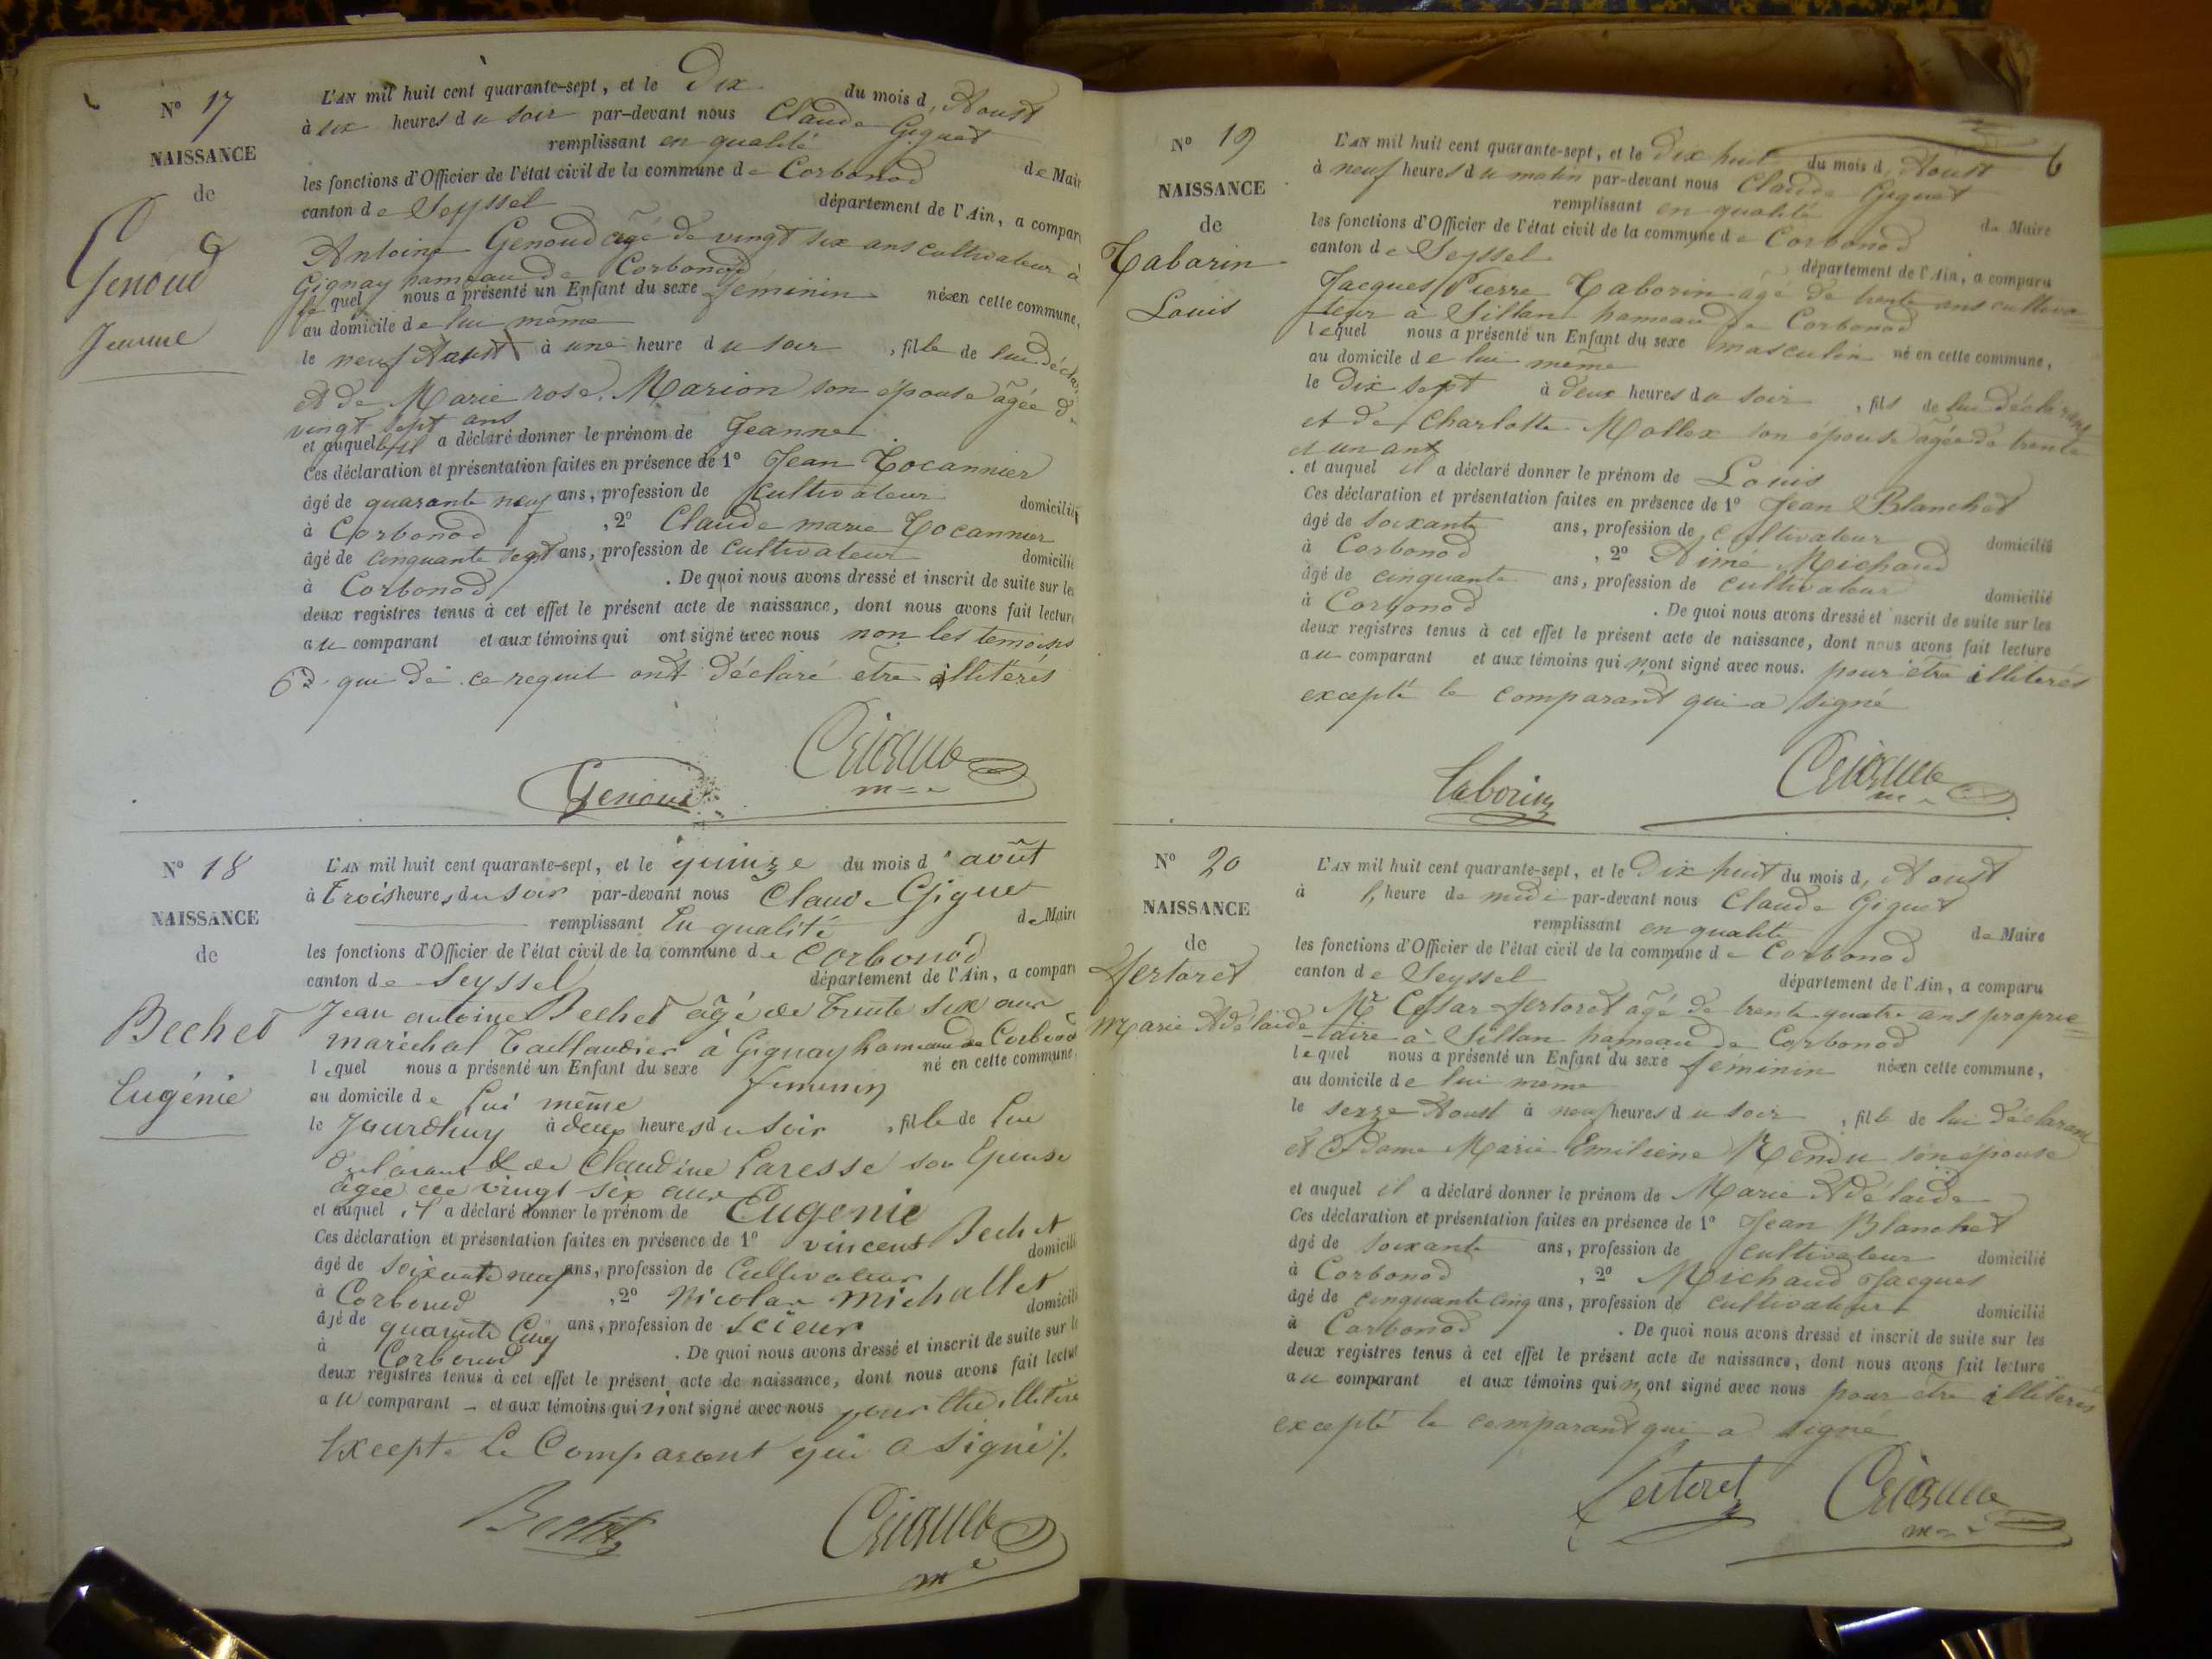 N° 17
NAISSANCE
de
Genoud
Jeanne
L'AN mil huit cent quarante-sept, et le Dix du mois d, Aoust
à six heures du soir par-devant nous Claude Giguet
remplissant en qualité de Mair
les fonctions d'Officier de l'état civil de la commune de Corbonod
canton de Seyssel département de l'Ain, a compar
Antoine Genoud âgé de vingt six ans cultivateur à
Gignay hameau de Corbonod
lequel nous a présenté un Enfant du sexe féminin née en cette commune,
au domicile de lui même
le neuf Aoust à une heure du soir, fille de lui décla
et de Marie rose Marion son épouse âgée de
vingt sept ans
et auquel il a déclaré donner le prénom de Jeanne
Ces déclaration et présentation faites en présence de 1° Jean Tocannier
âgé de quarante neuf ans, profession de cultivateur domicilié
à Corbonod, 2° Claude marie Tocannier
âgé de cinquante sept ans, profession de cultivateur domicilié
à Corbonod. De quoi nous avons dressé et inscrit de suite sur les
deux registres tenus à cet effet le présent acte de naissance, dont nous avons fait lecture
au comparant et aux témoins qui ont signé avec nous non les témoins
qui de ce requit ont déclaré etre illitérés
Genoud
Giguet
N° 18
NAISSANCE
de
Bechet
Eugénie
L'AN mil huit cent quarante-sept, et le quinze du mois d'août
à Trois heures du soir par-devant nous Claude Giguet
remplissant En qualité de Maire
les fonctions d'Officier de l'état civil de la commune de Corbonod
canton de Seyssel département de l'Ain, a compar
Jean antoine Bechet âgé de Trente six ans
maréchal Taillandier à Gignay hameau de Corbonod
lequel nous a présenté un Enfant du sexe feminin né en cette commune,
au domicile de Lui même
le Jourdhuy à deux heures du soir, fille de Lui
déclarant & de Claudine Laresse son Epouse
âgée de vingt six ans
et auquel il a déclaré donner le prénom de Eugenie
Ces déclaration et présentation faites en présence de 1° vincent Bechet
âgé de soixante neuf ans, profession de Cultivateur domicilié
à Corbonod, 2° Nicolas Michallet
âgé de quarante Cinq ans, profession de scieur domicilié
à Corbonod. De quoi nous avons dressé et inscrit de suite sur le
deux registres tenus à cet effet le présent acte de naissance, dont nous avons fait lectur
au comparant et aux témoins qui n'ont signé avec nous pour être illitéré
Excepte Le Comparant qui a signé
Bechet
Giguet
N° 19
NAISSANCE
de
Taborin
Louis
6
L'AN mil huit cent quarante-sept, et le Dix huit du mois d, Aoust
à neuf heures du matin par-devant nous Claude Giguet
remplissant en qualité de Maire
les fonctions d'Officier de l'état civil de la commune de Corbonod
canton de Seyssel département de l'Ain, a comparu
Jacques Pierre Taborin âgé de trente ans cultiva=
teur à Sillan hameau de Corbonod
lequel nous a présenté un Enfant du sexe masculin né en cette commune,
au domicile de lui même
le Dix sept à deux heures du soir, fils de lui déclarant
et de Charlotte Mollex son épouse âgée de trente
et un ans
et auquel il a déclaré donner le prénom de Louis
Ces déclaration et présentation faites en présence de 1° Jean Blanchet
âgé de soixante ans, profession de cultivateur domicilié
à Corbonod, 2° Aimé Michaud
âgé de cinquante ans, profession de cultivateur domicilié
à Corbonod. De quoi nous avons dressé et inscrit de suite sur les
deux registres tenus à cet effet le présent acte de naissance, dont nous avons fait lecture
au comparant et aux témoins qui n'ont signé avec nous. pour être illitérés
excepté le comparant qui a signé
Taborin
Giguet
N° 20
NAISSANCE
de
Fertoret
Marie Adélaide
L'AN mil huit cent quarante-sept, et le Dix huit du mois d, Aoust
à l, heure de midi par-devant nous Claude Giguet
remplissant en qualité de Maire
les fonctions d'Officier de l'état civil de la commune de Corbonod
canton de Seyssel département de l'Ain, a comparu
Mr César Fertoret âgé de trente quatre ans proprié=
taire à Sillan hameau de Corbonod
lequel nous a présenté un Enfant du sexe féminin née en cette commune,
au domicile de lui même
le seize Aoust à neuf heures du soir, fille de lui déclarant
et Dame Marie Emiliene Rendu son épouse
et auquel il a déclaré donner le prénom de Marie Adélaide
Ces déclaration et présentation faites en présence de 1° Jean Blanchet
âgé de soixante ans, profession de cultivateur domicilié
à Corbonod, 2° Michaud Jacques
âgé de cinquante cinq ans, profession de cultivateur domicilié
à Corbonod. De quoi nous avons dressé et inscrit de suite sur les
deux registres tenus à cet effet le présent acte de naissance, dont nous avons fait lecture
au comparant et aux témoins qui n, ont signé avec nous pour être illitérés
excepté le comparant qui a signé
Fertoret
Giguet